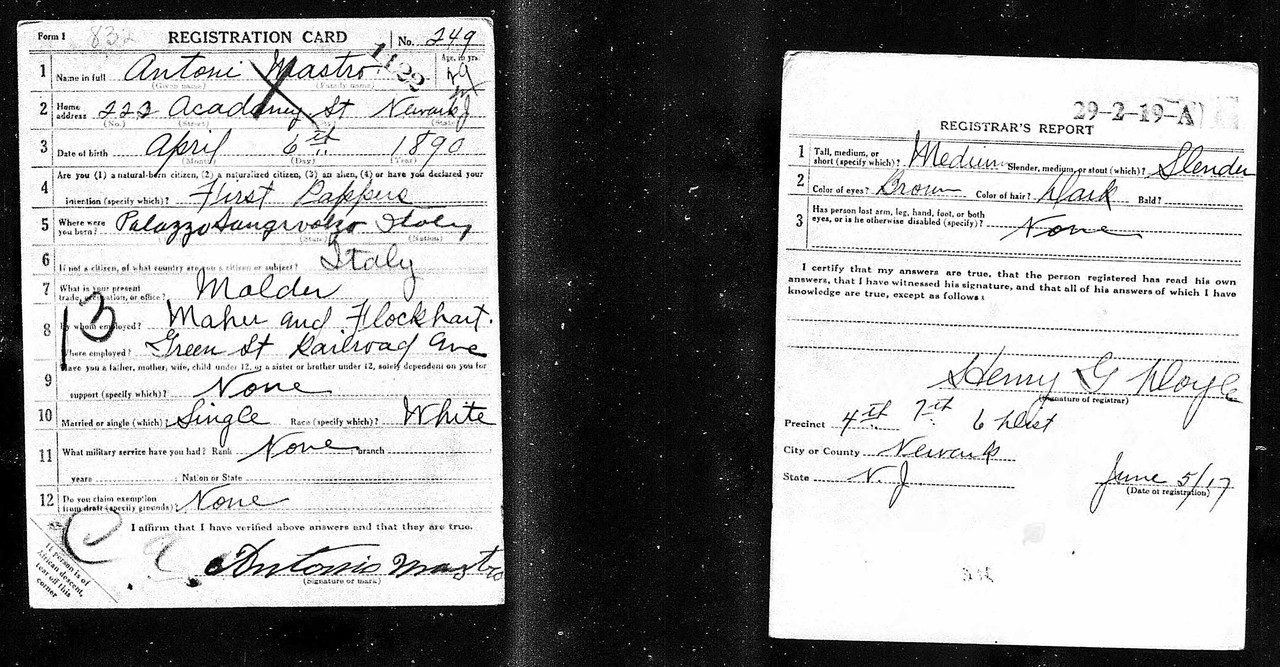 Form 1 832 REGISTRATION CARD No. 249
1 Name in full Antoni Mastro Age, in yrs.
(Given name) (Family name) 1122
2 Home address 223 Academy St Newark J
(No.) (Street) (State)
3 Date of birth April 6th 1890
(Month) (Day) (Year)
Are you (1) a natural-born citizen, (2) a naturalized citizen, (3) an alien, (4) or have you declared your
4 intention (specify which)? First Pappers
5 Where were you born? Palazzo Italy
(State) (Nation)
6 If not a citizen, of what country are you a citizen or subject? Italy
7 What is your present trade, occupation, or office? Molder
13
8 By whom employed? Maher and Flockhart.
Where employed? Green St Railroad Ave
Have you a father, mother, wife, child under 12, or a sister or brother under 12, solely dependent on you for
9 support (specify which)? None
10 Married or single (which)? Single Race (specify which)? White
11 What military service have you had? Rank None ; branch
years ; Nation or State
12 Do you claim exemption from draft (specify grounds)? None
I affirm that I have verified above answers and that they are true.
Antonio Mastro
(Signature or mark)
If person is of
African descent,
tear off this
corner
29-2-19-A
REGISTRAR'S REPORT
1 Tall, medium, or short (specify which)? Medium Slender, medium, or stout (which)? Slender
2 Color of eyes? Brown Color of hair? Dark Bald?
3 Has person lost arm, leg, hand, foot, or both eyes, or is he otherwise disabled (specify)? None
I certify that my answers are true, that the person registered has read his own
answers, that I have witnessed his signature, and that all of his answers of which I have
knowledge are true, except as follows:
Henry G Doyle
(Signature of registrar)
Precinct 4th 7th 6 Dist
City or County Newark
State N. J June 5/17
(Date of registration)